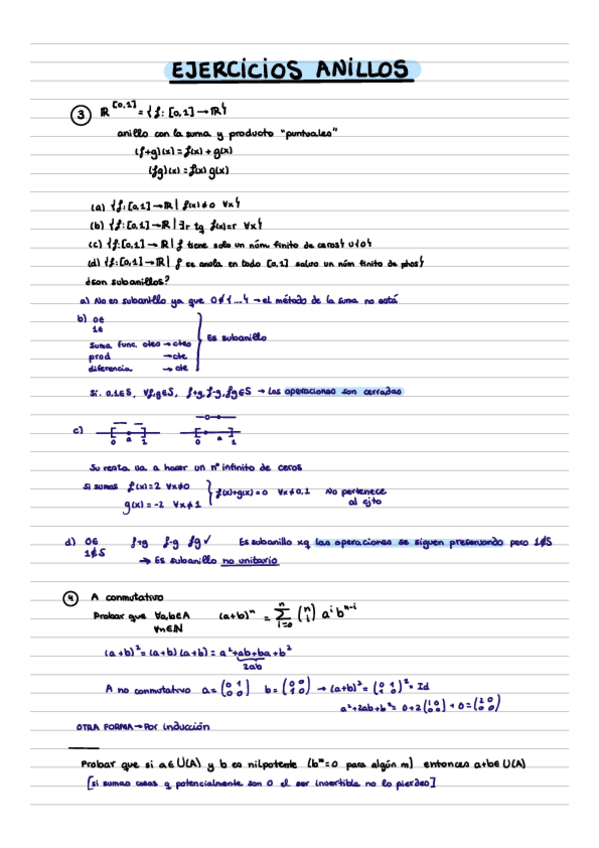 EJERCICIOS ANILLOS
③ ℝ^[0,1] = {f: [0,1] → ℝ}
anillo con la suma y producto "puntuales"
(f+g)(x) = f(x) + g(x)
(fg)(x) = f(x) g(x)
(a) {f: [0,1] → ℝ | f(x) ≠ 0 ∀x}
(b) {f: [0,1] → ℝ | ∃r tq f(x)=r ∀x}
(c) {f: [0,1] → ℝ | f tiene solo un núm finito de ceros} ∪ {0}
(d) {f: [0,1] → ℝ | f se anula en todo [0,1] salvo un núm finito de ptos}
¿son subanillos?
a) No es subanillo ya que 0 ∉ {...} → el método de la suma no está
b) 0∈
1∈
Suma func. ctes → ctes
prod → cte
diferencia → cte
Es subanillo
Si 0,1∈S, ∀f,g∈S, f+g, f-g, fg∈S → las operaciones son cerradas
c) 0 a 1 0 a 1
Su resta va a hacer un nº infinito de ceros
Si sumas f(x)=2 ∀x≠0
g(x)=-2 ∀x≠1
f(x)+g(x)=0 ∀x≠0,1 No pertenece
al cjto
d) 0∈ f+g f-g fg ✓ Es subanillo xq las operaciones se siguen preservando pero 1∉S
1∉S
→ Es subanillo no unitario
④ A conmutativo
Probar que ∀a,b∈A (a+b)^n = ∑_{i=0}^{n} (n i) a^i b^{n-i}
∀n∈ℕ
(a+b)² = (a+b)(a+b) = a² + ab + ba + b²
2ab
A no conmutativo a = (0 1 / 0 0) b = (0 0 / 1 0) → (a+b)² = (0 1 / 1 0)² = Id
a²+2ab+b² = 0+2(1 0 / 0 0)+0 = (2 0 / 0 0)
OTRA FORMA → Por inducción
Probar que si a∈U(A) y b es nilpotente (b^m=0 para algún m) entonces a+b∈U(A)
[si sumas cosas q potencialmente son 0 el ser invertible no lo pierdes]